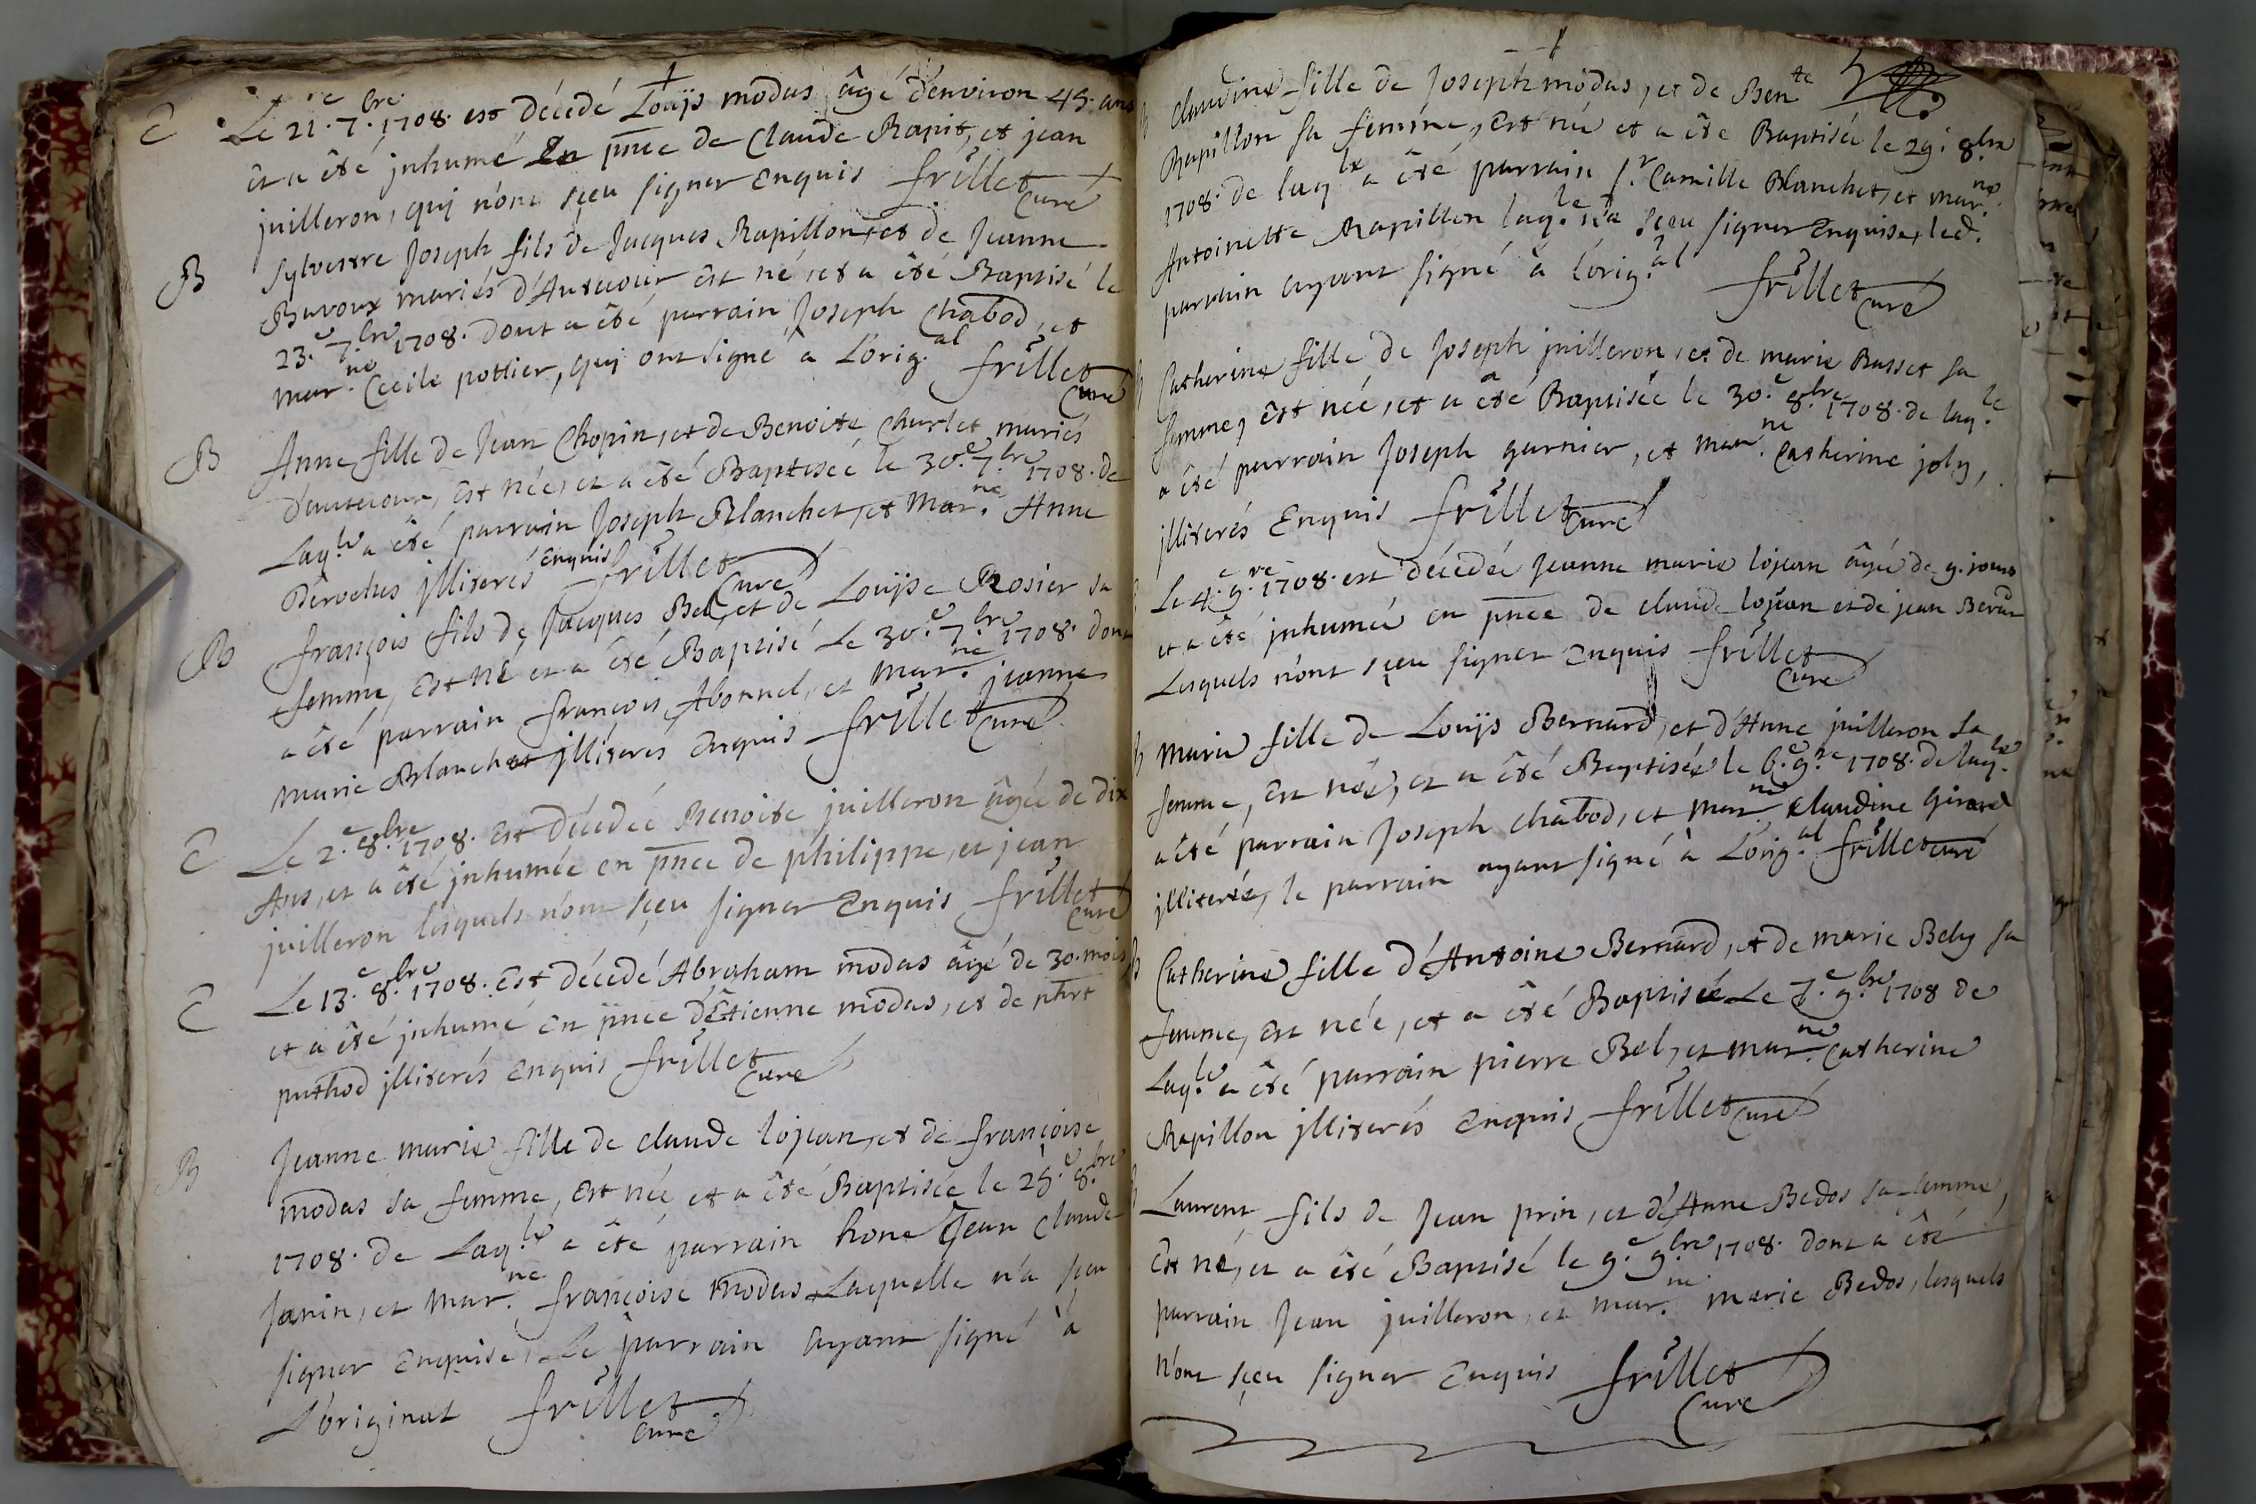 C Le 21.e 7.bre 1708. est décedé Loüjs modas âgé d'environ 45. ans
et a été jnhumé En pnce de Claude Rapit, et jean
juilleron, quj n'ont sçeu signer Enquis frillet Curé
B Sylvestre Joseph fils de Jacques Rapillon, et de Jeanne
Buvoux mariés d'Autecour Est né, et a été Baptisé le
23.e 7.bre 1708. dont a été parrain Joseph Chabod, et
mar.ne Cecile pottier, quj ont signé a L'orig.al frillet Curé
B Anne fille de Jean Chopin, et de Benoite Charlet mariés
d'autecour, Est née, et a été Baptiseé le 30.e 7.bre 1708. de
Laq.le a été parrain Joseph Blanchet, et Mar.ne Anne
Deroches jlliterés Enquis frillet Curé
B françois fils de Jacques Bel, et de Louïse Rosier sa
femme, Est né et a été Baptisé Le 30.e 7.bre 1708. dont
a été parrain françois Abonnel, et Mar.ne jeanne
marie Blanchet jlliterés Enquis frillet Curé
C Le 2.e 8.bre 1708. Est décedeé Benoite juilleron âgée de dix
Ans, et a été jnhumée en pnce de philippe, et jean
juilleron lesquels n'ont sçeu signer Enquis frillet Curé
C Le 13.e 8.bre 1708. Est décedé Abraham modas âgé de 30. mois
et a été jnhumé En pnce d'Etienne modas, et de phrt
puthod jlliterés Enquis frillet Curé
B Jeanne marie fille de claude lojean, et de françoise
modas sa femme, Est née et a été Baptisée le 25.e 8.bre
1708. de Laq.le a été parrain hone Jean Claude
Janin, et Mar.ne françoise modas Laquelle n'a sçeu
signer Enquise, Le parrain ayant signé à
L'original frillet Curé
Claudine fille de Joseph modas, et de Ben.te
Rapillon sa femme, Est née et a été Baptisée le 29.e 8.bre
1708. de laq.le a été parrain s.r Camille Blanchet, et mar.ne
Antoinette Rapillon laq.le n'a sçeu signer Enquise, led.
parrain ayant signé à l'orig.al frillet Curé
Catherine fille de Joseph juilleron, et de marie Basset sa
femme, Est née, et a été Baptisée le 30.e 8.bre 1708. de laq.le
a été parrain Joseph garnier, et Mar.ne Catherine joly,
jlliterés Enquis frillet Curé
Le 4.e 9.re 1708. est décedée Jeanne marie lojean âgée de 9. jours
et a été jnhumée en pnce de claude lojean et de jean Berard
Lesquels n'ont sçeu signer Enquis frillet Curé
B Marie fille de Loüjs Bernard, et d'Anne juilleron sa
femme, Est née, et a été Baptisée le 6.e 9.re 1708. de laq.le
a été parrain Joseph chabod, et Mar.ne claudine Girard
jlliterée, le parrain ayant signé à L'orig.al frillet curé
B Catherine fille d'Antoine Bernard, et de marie Bely sa
femme, Est née, et a été Baptisée Le 7.e 9.bre 1708 de
Laq.le a été parrain pierre Bel, et mar.ne Catherine
Rapillon jlliterés Enquis frillet Curé
Laurent fils de Jean prin, et d'Anne Bedos sa femme,
Est né, et a été Baptisé le 9.e 9.bre 1708. dont a été
parrain Jean juilleron, et mar.ne marie Bedos, lesquels
n'ont sçeu signer Enquis frillet Curé